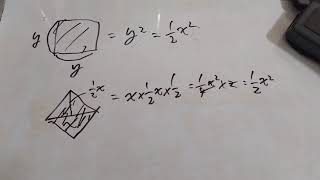 y = y² = ½x²
y
½x = x × ½x × ½ = ¼x² × x = ½x²